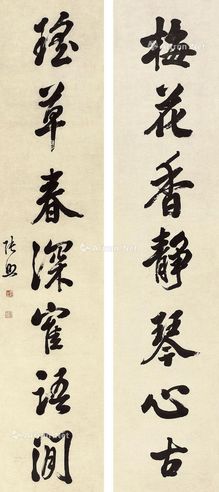 梅花香静琴心古
瑶草春深鹤语闲
张照